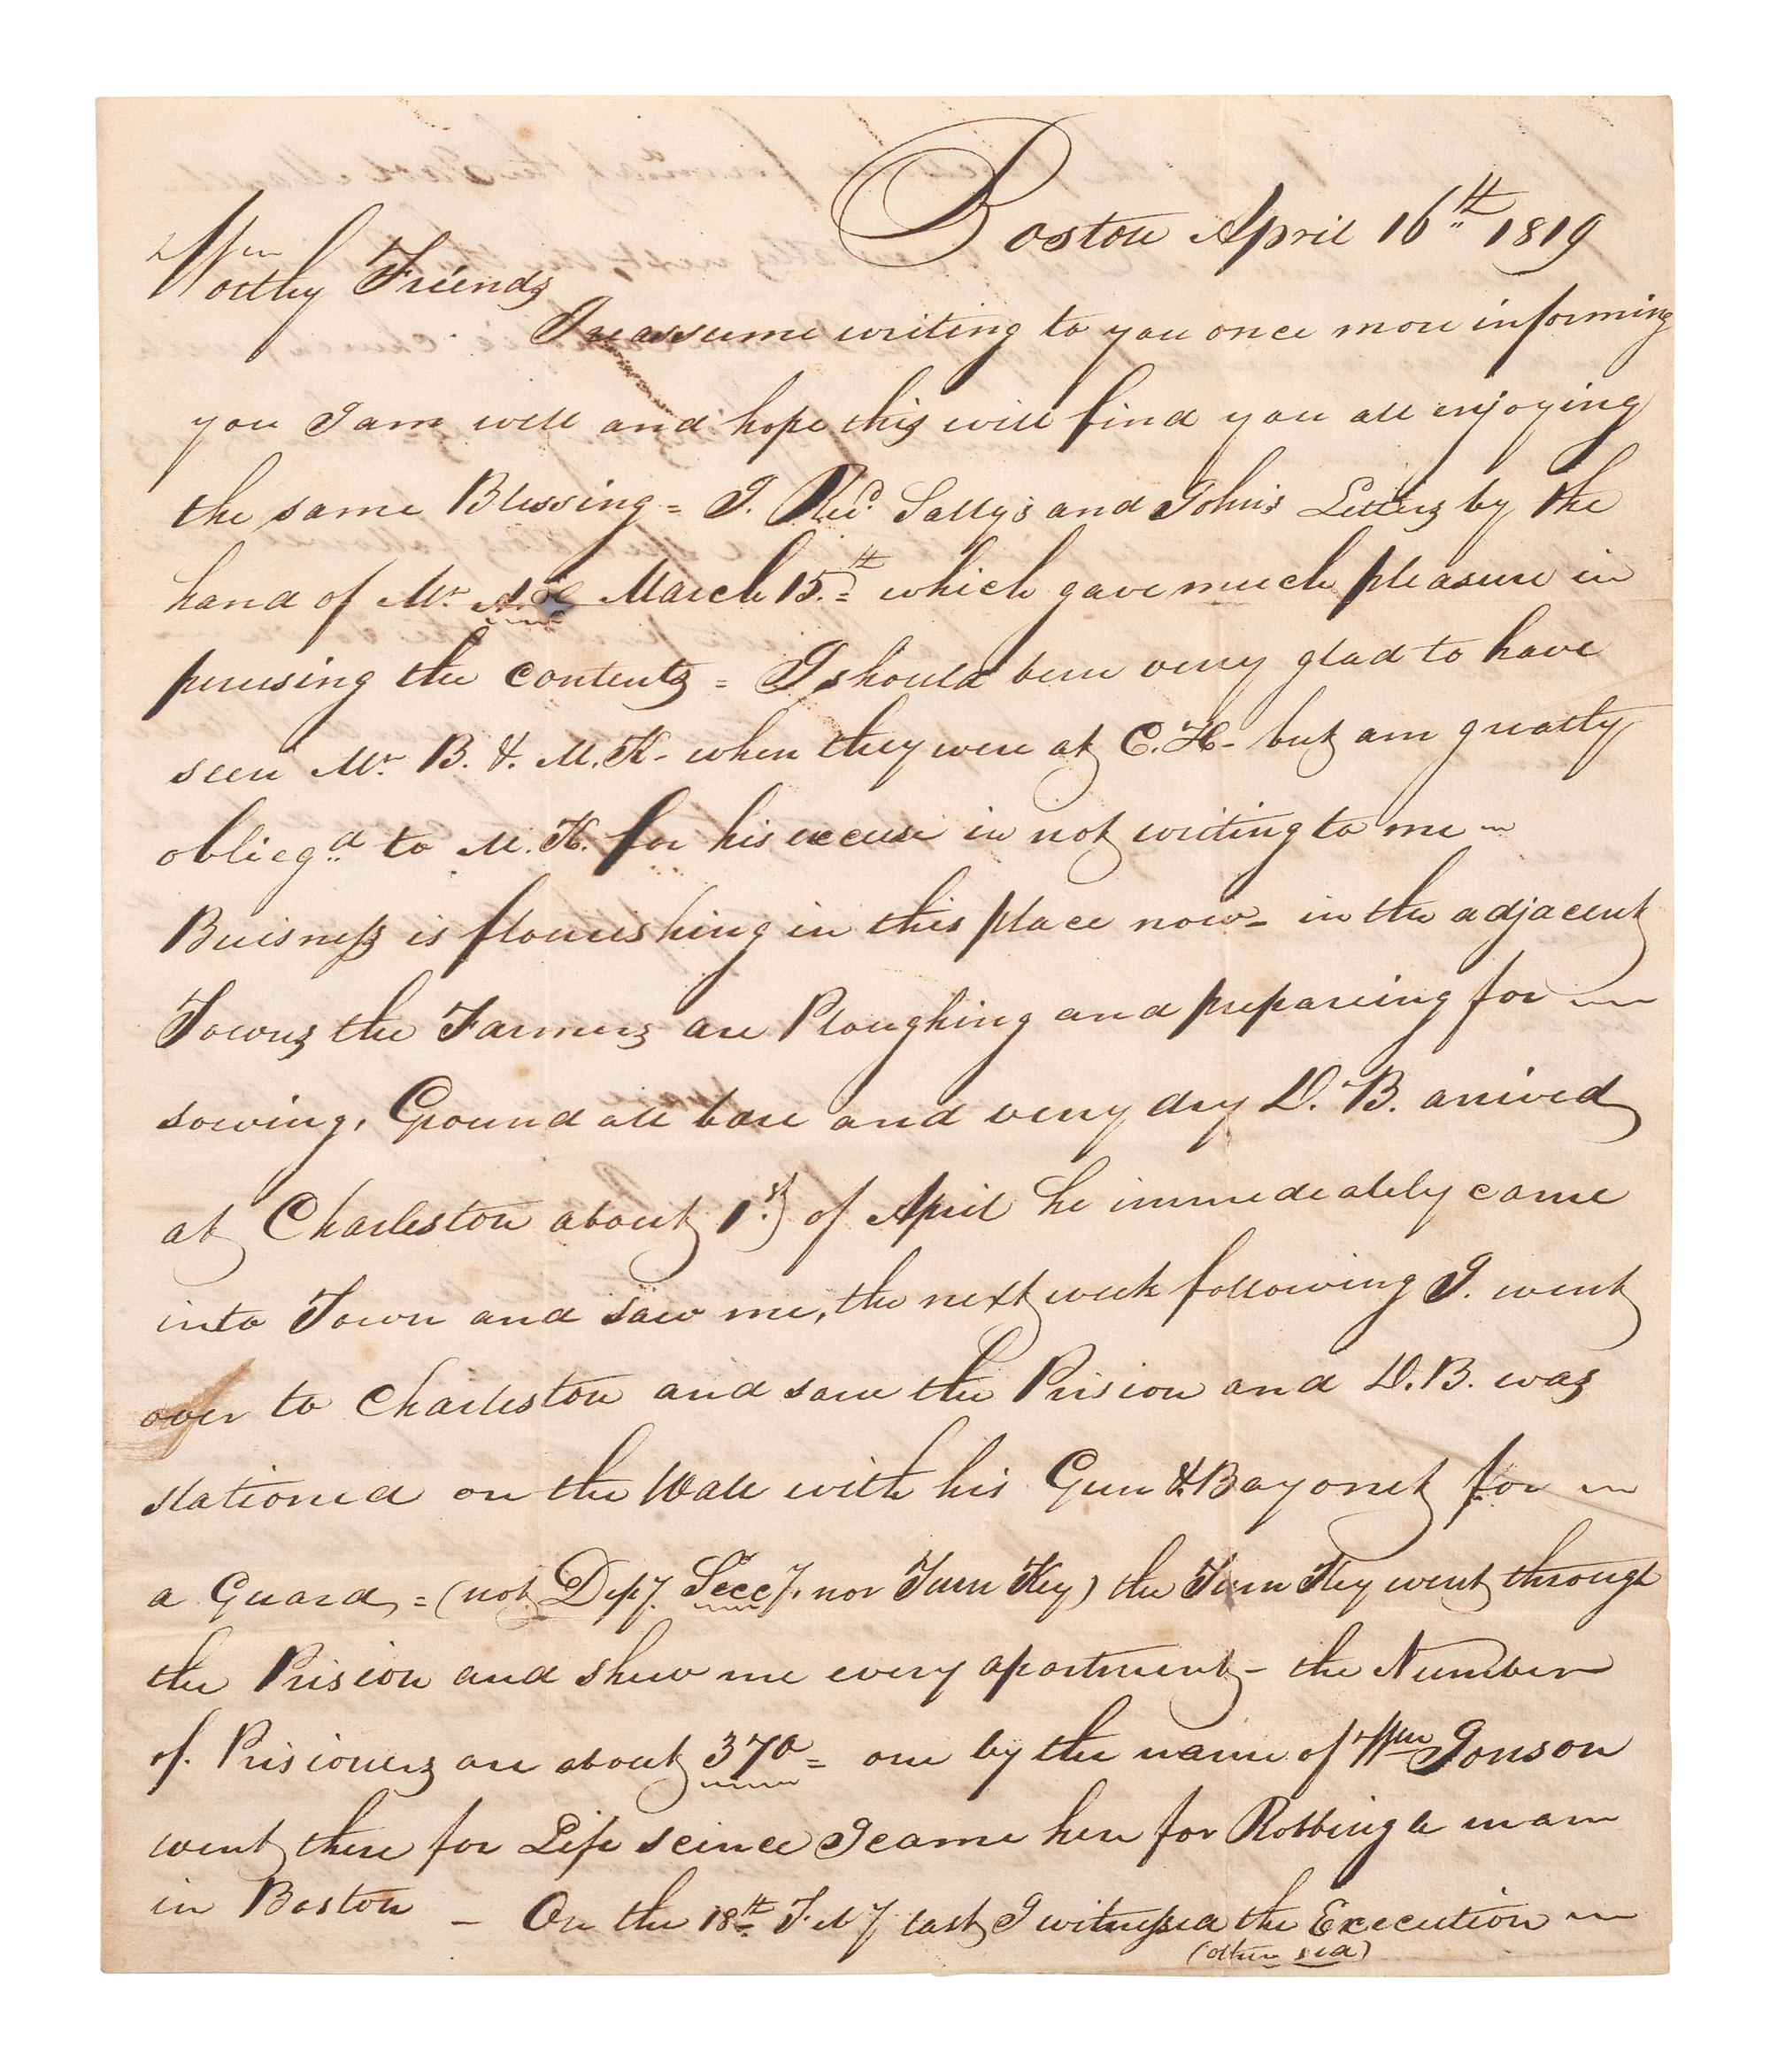 Boston April 16th 1819
Worthy Friends
I reassume writing to you once more informing
you I am well and hope this will find you all enjoying
the same Blessing = I. Recd. Sally's and John's Letters by the
hand of Mr. A. March 15.th = which gave much pleasure in
perusing the contents = I should been very glad to have
seen Mr. B. & M. K - when they were at C. H - but am greatly
obliegd to M. K. for his excuse in not writing to me ~
Buisness is flourishing in this place now - in the adjacent
Towns the Farmers are Ploughing and prepareing for ~
sowing, Ground all bare and very dry D. B. arrived
at Charleston about 1st of April he immedeately came
into Town and saw me, the next week following I. went
over to Charleston and saw the Prision and D. B. was
stationed on the Wall with his Gun & Bayonet for ~
a Guard, = (not Depy. Secy, nor Turn Key) the Turn Key went through
the Prision and shew me every apartment - the Number
of Prisioners are about 370 = one by the name of Wm Jonson
went there for Life seince I came here for Robbing a man
in Boston - On the 18th Feby last I witnessed the Execution ~
(other sid)